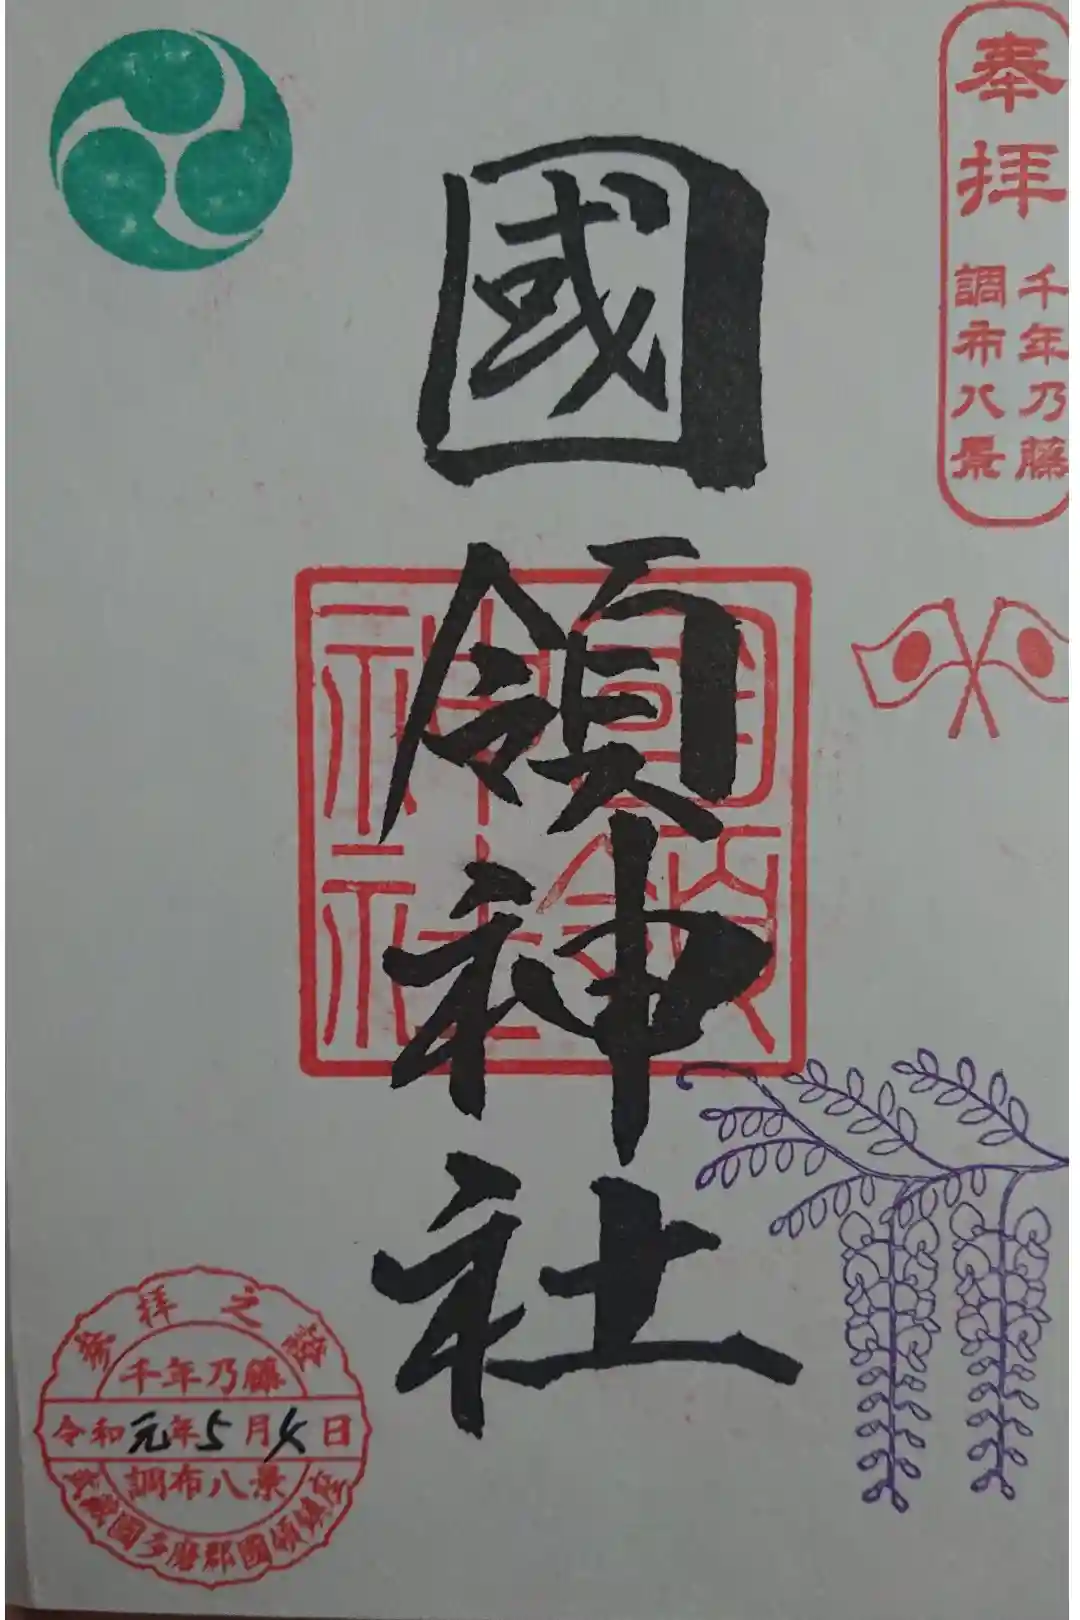 奉拝
千年乃藤
調布八景
國領神社
國領
神社
参拝之證
千年乃藤
令和元年5月4日
調布八景
武蔵國多磨郡國領鎮座